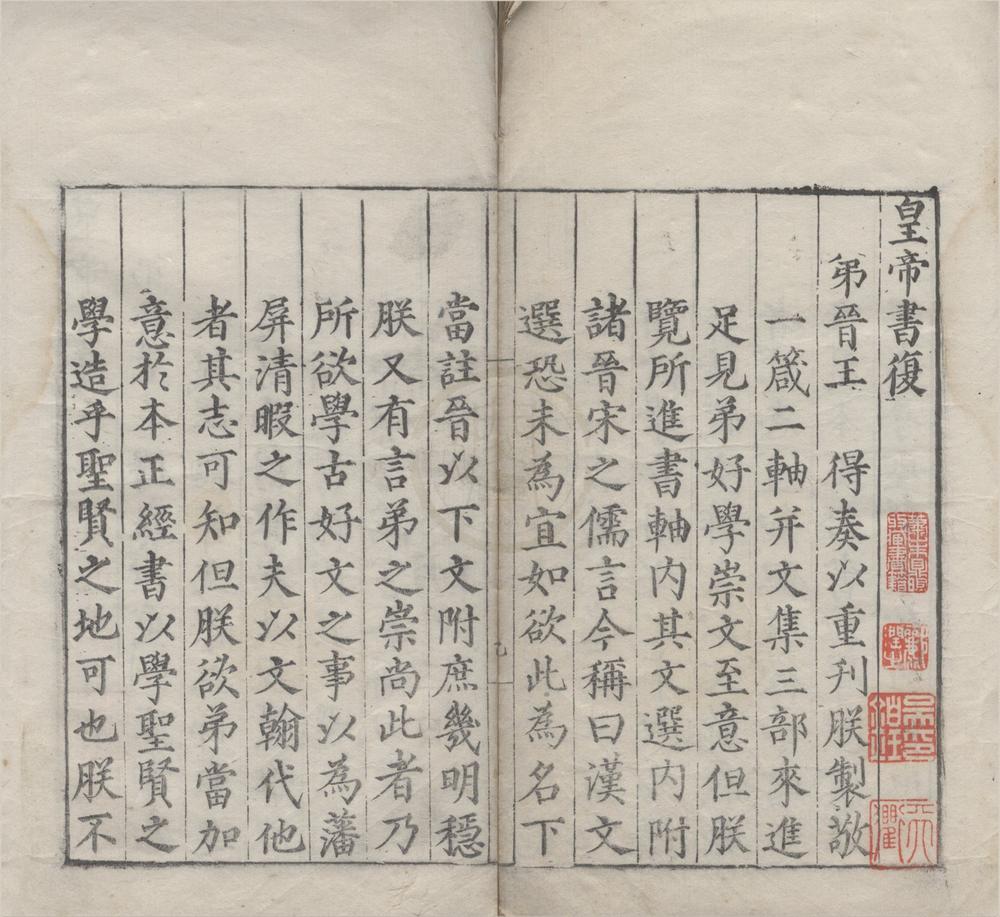 皇帝書復
弟晉王　得奏以重刊朕製敬
一箴二軸并文集三部來進
足見弟好學崇文至意但朕
覽所進書軸内其文選内附
諸晉宋之儒言今稱曰漢文
選恐未為宜如欲此為名下
當註晉以下文附庶幾明穩
朕又有言弟之崇尚此者乃
所欲學古好文之事以為藩
屏清暇之作夫以文翰代他
者其志可知但朕欲弟當加
意於本正經書以學聖賢之
學造乎聖賢之地可也朕不